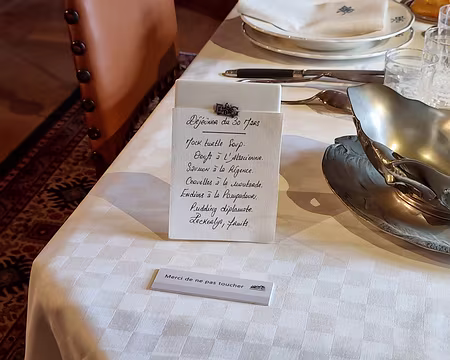 Déjeuner du 30 Mars
Mock turtle Soup.
Oeufs à L'Alsacienne.
Saumon à la Régence.
Crevettes à la
Endives à la Pompadour.
Pudding diplomate.
Leckerlys, fruits.
Merci de ne pas toucher